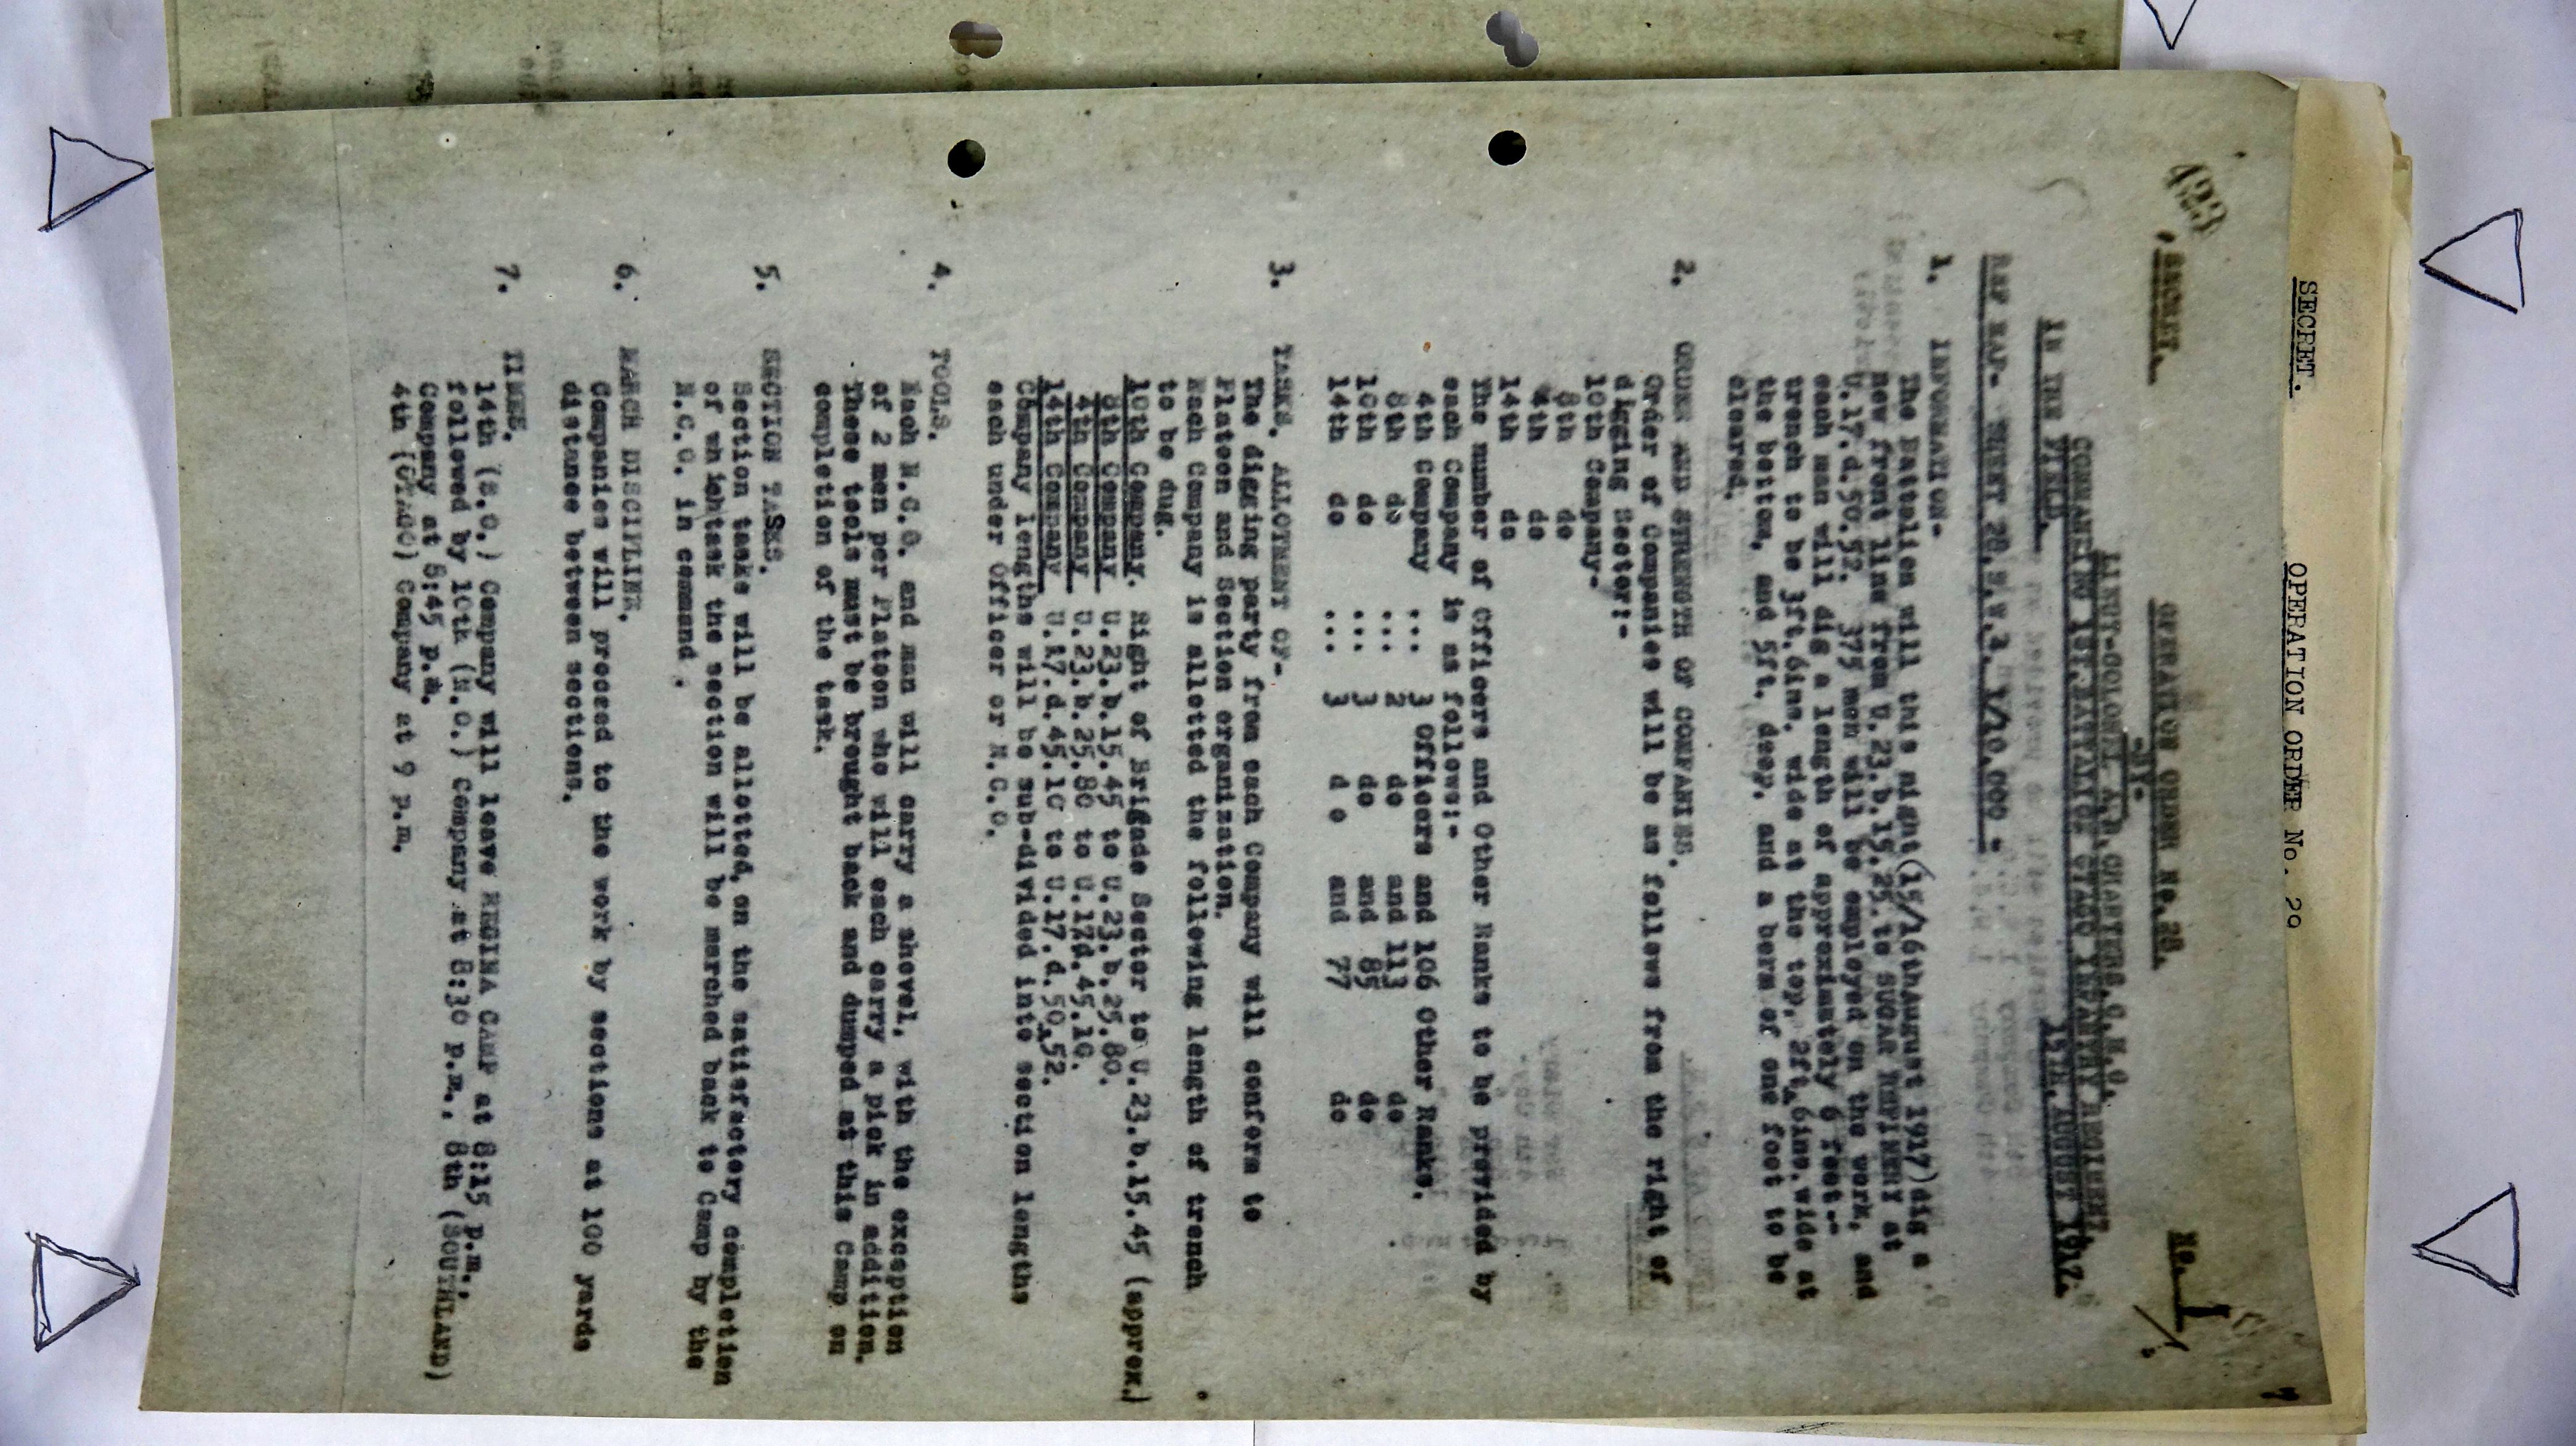 SECRET. OPERATION ORDER No. 29
423
SECRET. OPERATION ORDER No.28. No. 1
-BY-
LIEUT-COLONEL A.B.CHARTERS,C.M.G.,
COMMANDING 1ST.BATTALION OTAGO INFANTRY REGIMENT.
IN THE FIELD. 15TH.AUGUST 1917.
REF MAP- SHEET 28.S.W.4. 1/10,000 -
1. INFORMATION-
The Battalion will this night(15/16thAugust 1917)dig a
new front line from U.23.b.15.25.to SUGAR REFINERY at
U.17.d.50.52. 375 men will be employed on the work, and
each man will dig a length of approximately 6 feet-
trench to be 3ft.6ins. wide at the top, 2ft.6ins.wide at
the bottom, and 5ft. deep, and a berm of one foot to be
cleared.
2. ORDER AND STRENGTH OF COMPANIES.
Order of Companies will be as follows from the right of
digging Sector:-
10th Company-
8th do
4th do
14th do
The number of Officers and Other Ranks to be provided by
each Company is as follows:-
4th Company ... 3 Officers and 106 Other Ranks.
8th do ... 2 do and 113 do
10th do ... 3 do and 85 do
14th do ... 3 d o and 77 do
3. TASKS. ALLOTMENT OF-
The digging party from each Company will conform to
Platoon and Section organization.
Each Company is allotted the following length of trench
to be dug.
10th Company. Right of Brigade Sector to U.23.b.15.45 (approx.)
8th Company U.23.b.15.45 to U.23.b.25.80.
4th Company U.23.b.25.80 to U.17d.45.10.
14th Company U.17.d.45.10 to U.17.d.50.52.
Company lengths will be sub-divided into section lengths
each under Officer or N.C.O.
4. TOOLS.
Each N.C.O. and man will carry a shovel, with the exception
of 2 men per Platoon who will each carry a pick in addition.
These tools must be brought back and dumped at this Camp on
completion of the task.
5. SECTION TASKS.
Section tasks will be allotted, on the satisfactory completion
of whichtask the section will be marched back to Camp by the
N.C.O. in command .
6. MARCH DISCIPLINE.
Companies will proceed to the work by sections at 100 yards
distance between sections.
7. TIMES.
14th (S.O.) Company will leave REGINA CAMP at 8:15 p.m.,
followed by 10th (N.O.) Company at 8:30 p.m., 8th (SOUTHLAND)
Company at 8:45 p.m.
4th (OTAGO) Company at 9 p.m.